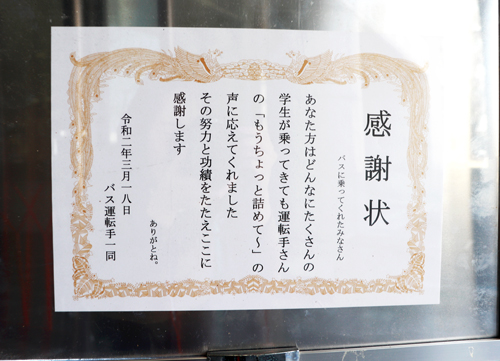 感謝状
バスに乗ってくれたみなさん
あなた方はどんなにたくさんの
学生が乗ってきても運転手さん
の「もうちょっと詰めて〜」の
声に応えてくれました
その努力と功績をたたえここに
感謝します
ありがとね。
令和二年三月一八日
バス運転手一同